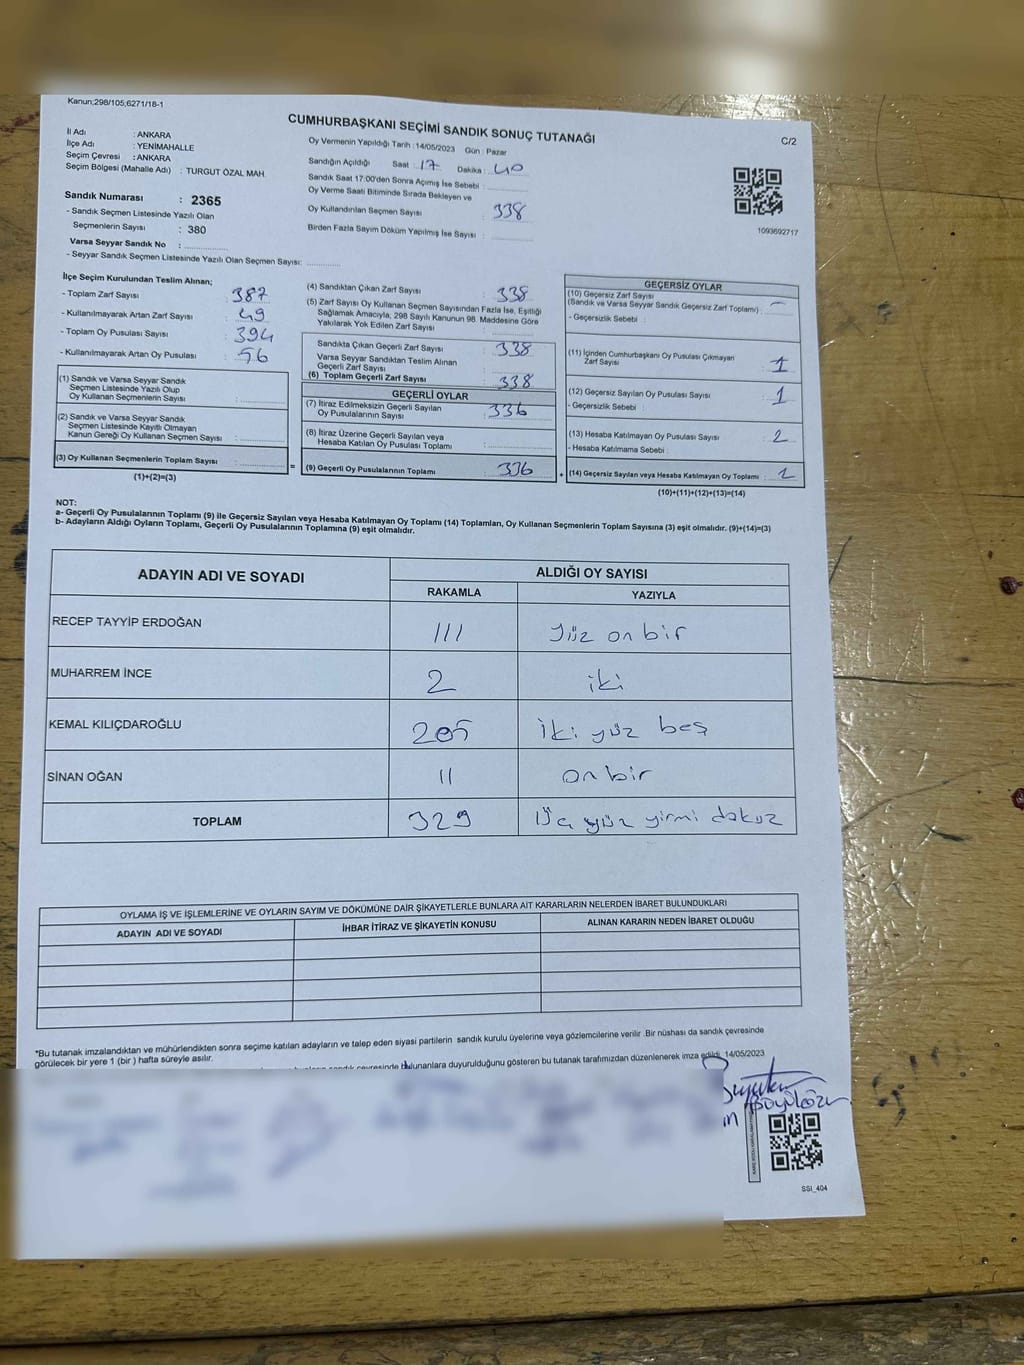 Kanun;298/105;6271/18-1
CUMHURBAŞKANI SEÇİMİ SANDIK SONUÇ TUTANAĞI
C/2
İl Adı : ANKARA
İlçe Adı : YENİMAHALLE
Seçim Çevresi : ANKARA
Seçim Bölgesi (Mahalle Adı) : TURGUT ÖZAL MAH.
Sandık Numarası : 2365
- Sandık Seçmen Listesinde Yazılı Olan
Seçmenlerin Sayısı : 380
Varsa Seyyar Sandık No :
- Seyyar Sandık Seçmen Listesinde Yazılı Olan Seçmen Sayısı:
Oy Vermenin Yapıldığı Tarih : 14/05/2023 Gün : Pazar
Sandığın Açıldığı Saat : 17 Dakika : 40
Sandık Saat 17:00'den Sonra Açımış İse Sebebi :
Oy Verme Saati Bitiminde Sırada Bekleyen ve
Oy Kullandırılan Seçmen Sayısı : 338
Birden Fazla Sayım Döküm Yapılmış İse Sayısı :
1093692717
İlçe Seçim Kurulundan Teslim Alınan;
- Toplam Zarf Sayısı : 387
- Kullanılmayarak Artan Zarf Sayısı : 49
- Toplam Oy Pusulası Sayısı : 394
- Kullanılmayarak Artan Oy Pusulası : 56
(1) Sandık ve Varsa Seyyar Sandık
Seçmen Listesinde Yazılı Olup
Oy Kullanan Seçmenlerin Sayısı :
(2) Sandık ve Varsa Seyyar Sandık
Seçmen Listesinde Kayıtlı Olmayan
Kanun Gereği Oy Kullanan Seçmen Sayısı :
(3) Oy Kullanan Seçmenlerin Toplam Sayısı : =
(1)+(2)=(3)
(4) Sandıktan Çıkan Zarf Sayısı : 338
(5) Zarf Sayısı Oy Kullanan Seçmen Sayısından Fazla İse, Eşitliği
Sağlamak Amacıyla, 298 Sayılı Kanunun 98. Maddesine Göre
Yakılarak Yok Edilen Zarf Sayısı :
Sandıkta Çıkan Geçerli Zarf Sayısı : 338
Varsa Seyyar Sandıktan Teslim Alınan
Geçerli Zarf Sayısı :
(6) Toplam Geçerli Zarf Sayısı : 338
GEÇERLİ OYLAR
(7) İtiraz Edilmeksizin Geçerli Sayılan
Oy Pusulalarının Sayısı : 336
(8) İtiraz Üzerine Geçerli Sayılan veya
Hesaba Katılan Oy Pusulası Toplamı :
(9) Geçerli Oy Pusulalarının Toplamı : 336 +
GEÇERSİZ OYLAR
(10) Geçersiz Zarf Sayısı
(Sandık ve Varsa Seyyar Sandık Geçersiz Zarf Toplamı) : –
- Geçersizlik Sebebi :
(11) İçinden Cumhurbaşkanı Oy Pusulası Çıkmayan
Zarf Sayısı : 1
(12) Geçersiz Sayılan Oy Pusulası Sayısı : 1
- Geçersizlik Sebebi :
(13) Hesaba Katılmayan Oy Pusulası Sayısı : 2
- Hesaba Katılmama Sebebi :
(14) Geçersiz Sayılan veya Hesaba Katılmayan Oy Toplamı :
(10)+(11)+(12)+(13)=(14)
NOT:
a- Geçerli Oy Pusulalarının Toplamı (9) ile Geçersiz Sayılan veya Hesaba Katılmayan Oy Toplamı (14) Toplamları, Oy Kullanan Seçmenlerin Toplam Sayısına (3) eşit olmalıdır. (9)+(14)=(3)
b- Adayların Aldığı Oyların Toplamı, Geçerli Oy Pusulalarının Toplamına (9) eşit olmalıdır.
ADAYIN ADI VE SOYADI ALDIĞI OY SAYISI
RAKAMLA YAZIYLA
RECEP TAYYİP ERDOĞAN 111 yüz on bir
MUHARREM İNCE 2 iki
KEMAL KILIÇDAROĞLU 205 iki yüz beş
SİNAN OĞAN 11 on bir
TOPLAM 329 Üç yüz yirmi dokuz
OYLAMA İŞ VE İŞLEMLERİNE VE OYLARIN SAYIM VE DÖKÜMÜNE DAİR ŞİKAYETLERLE BUNLARA AİT KARARLARIN NELERDEN İBARET BULUNDUKLARI
ADAYIN ADI VE SOYADI İHBAR İTİRAZ VE ŞİKAYETİN KONUSU ALINAN KARARIN NEDEN İBARET OLDUĞU
*Bu tutanak imzalandıktan ve mühürlendikten sonra seçime katılan adayların ve talep eden siyasi partilerin sandık kurulu üyelerine veya gözlemcilerine verilir .Bir nüshası da sandık çevresinde
görülecek bir yere 1 (bir ) hafta süreyle asılır.
çevresinde bulunanlara duyurulduğunu gösteren bu tutanak tarafımızdan düzenlenerek imza edildi. 14/05/2023
SSI_404